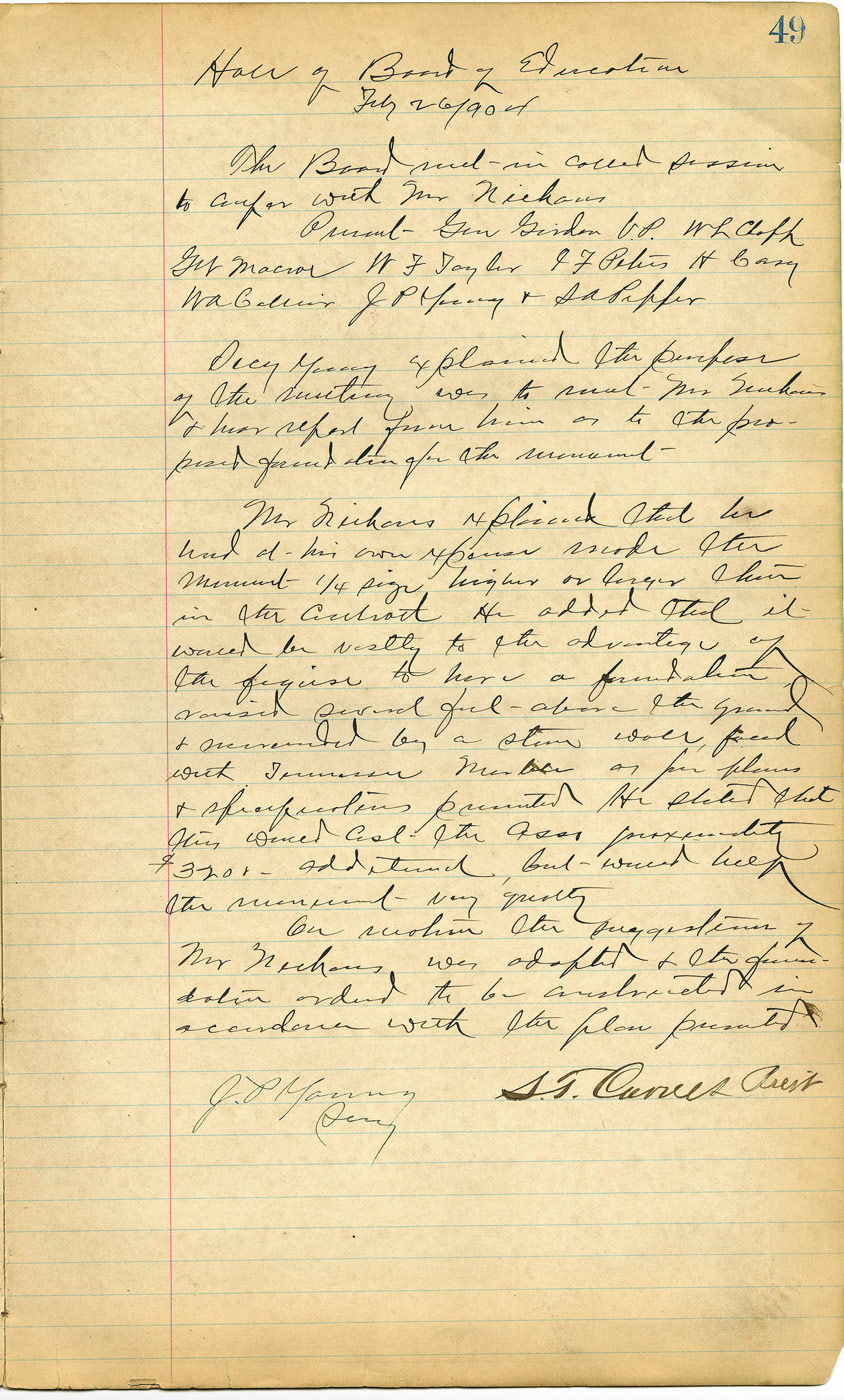 49
Hall of Board of Education
Feby 26/904
The Board met in called session
to confer with Mr Niehaus
Present Gen Gordon V.P. W L Clapp
G W Macrae W F Taylor I F Peters H Casey
W A Collier J P Young & S A Pepper
Secy Young explained the purpose
of the meeting was to meet Mr Niehaus
& hear report from him as to the pro-
posed foundation for the monument
Mr Niehaus explained that he
had at his own expense made the
Monument 1/4 size higher or larger than
in the contract He added that it
would be vastly to the advantage of
the figure to have a foundation
raised several feet above the ground
& surrounded by a stone wall, faced
with Tennessee Marble as per plans
& specifications presented He stated that
this would cost the Asso proximately
additional, but would help
the monument very greatly
On motion the suggestion of
Mr Niehaus was adopted & the foun-
dation ordered to be constructed in
accordance with the plan presented
J. P. Young S. T. Carnes Prest
Secy